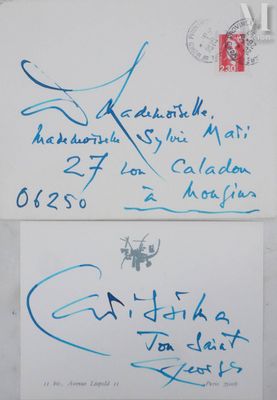 Millon
2,30
Mademoiselle,
Mademoiselle Sylvie Mari
27 Lou Caladou
06250
à Mougins
Ton Saint
Georges
11 bis, Avenue Léopold II
Paris 75016